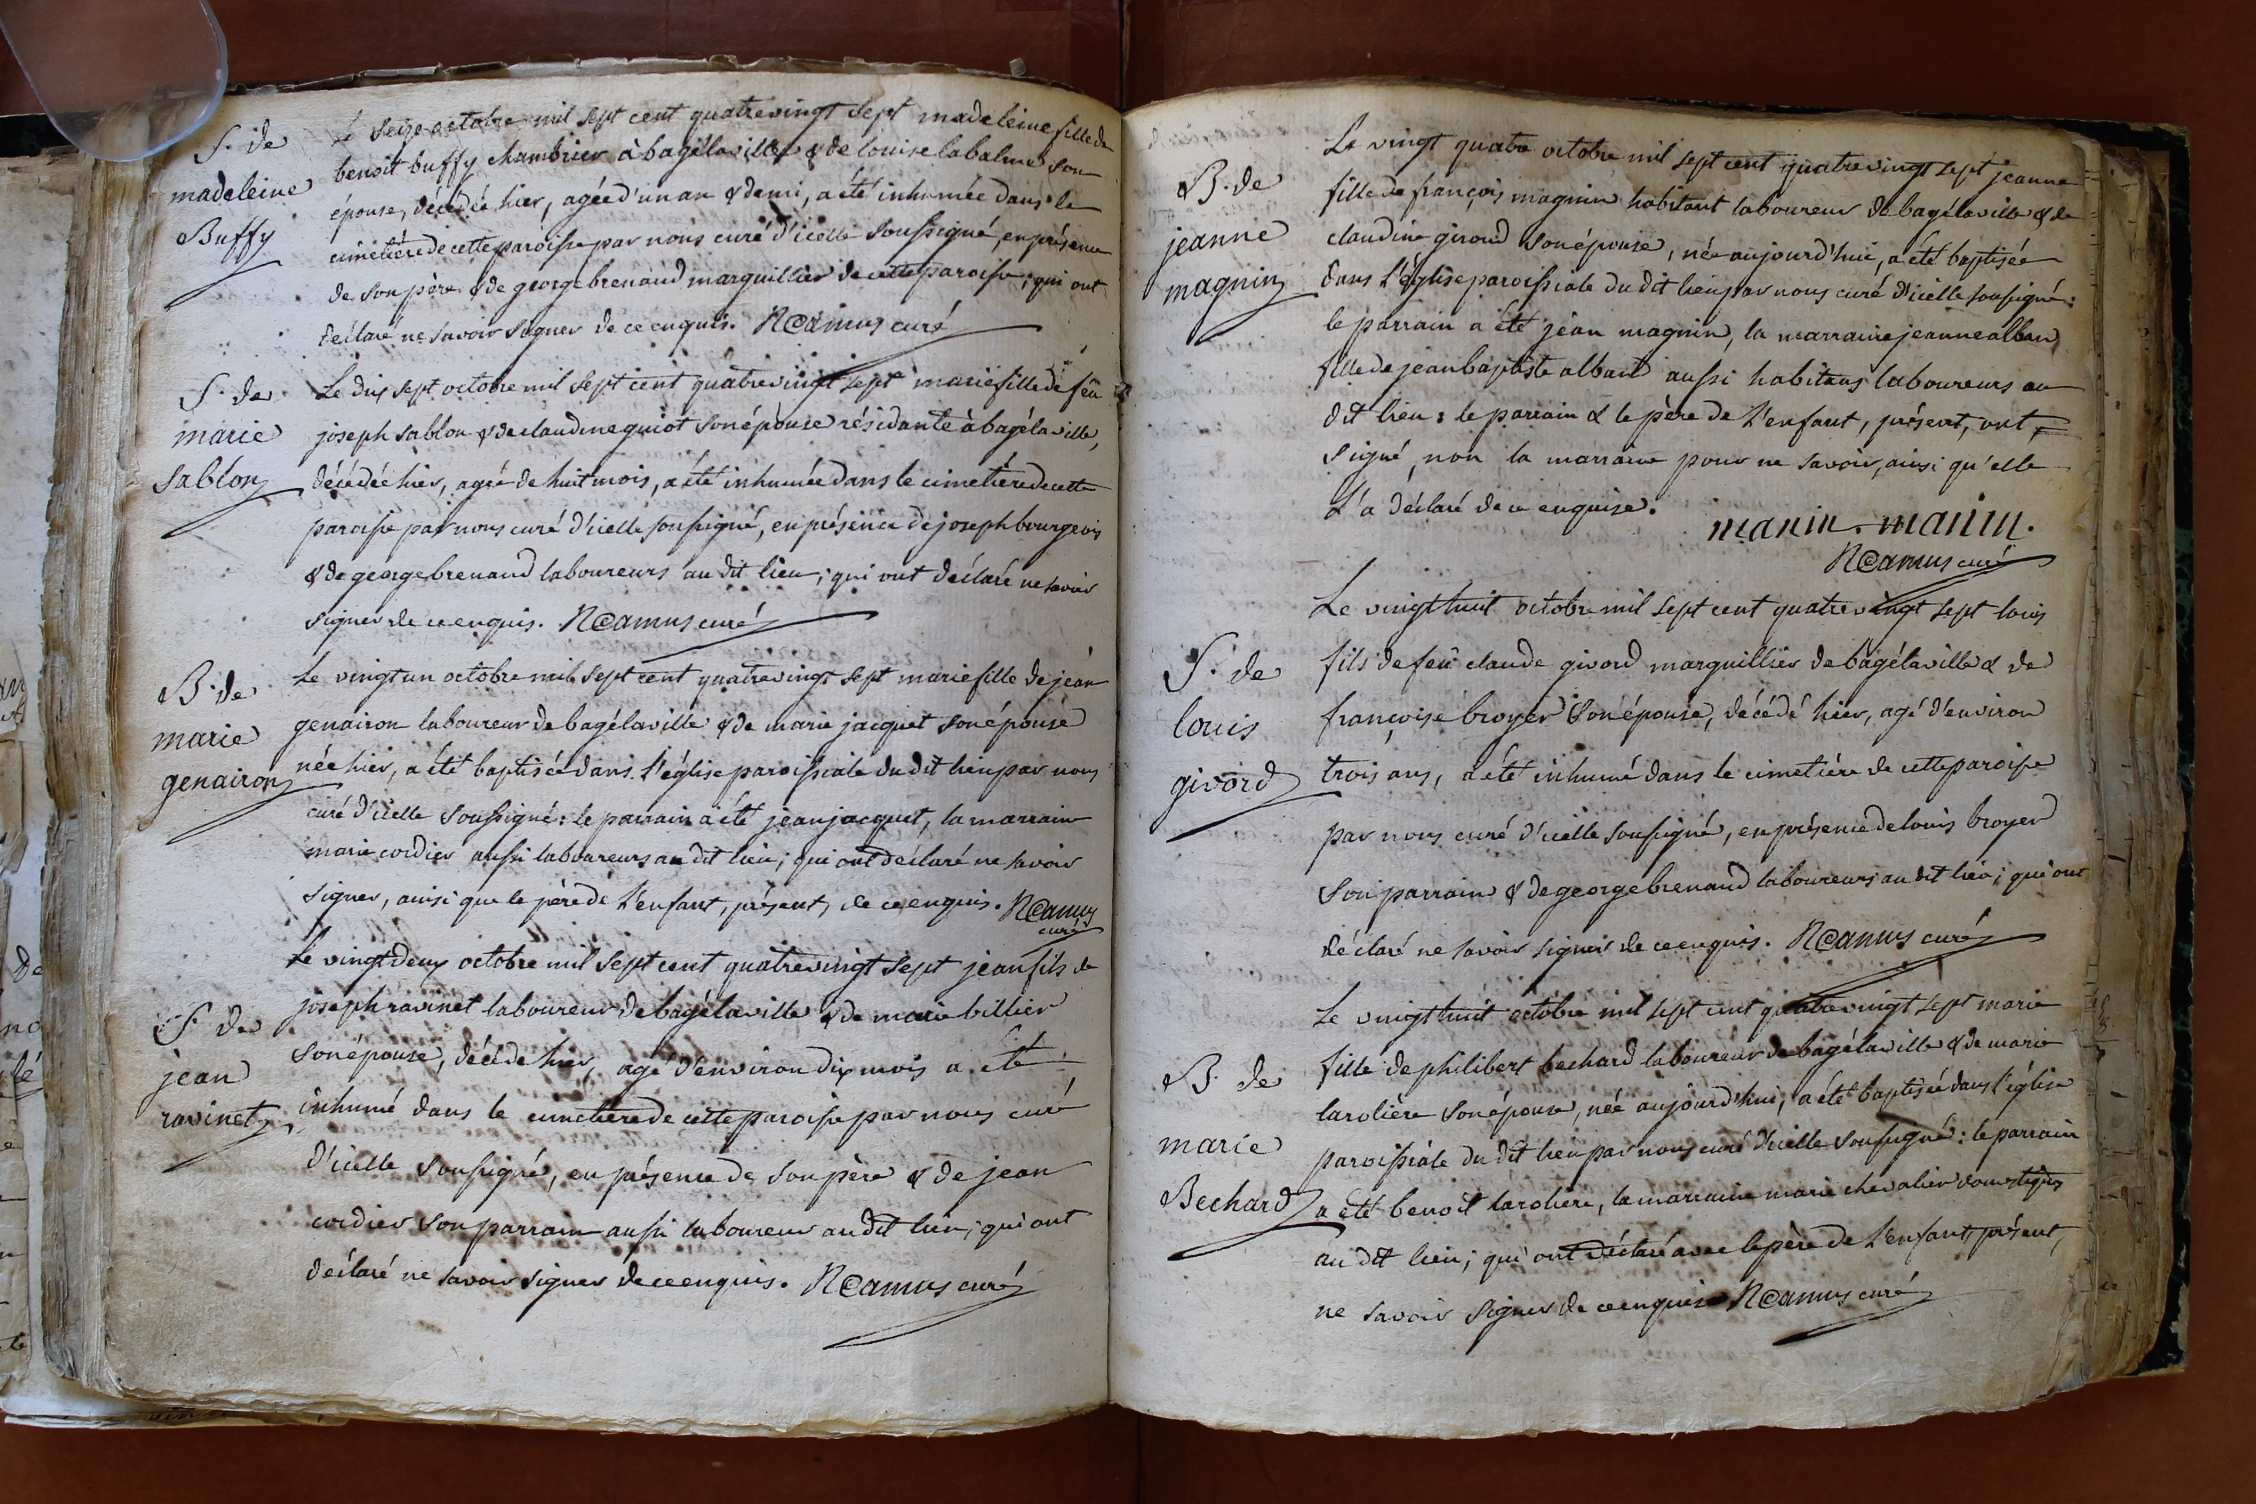 S. de
madeleine
Buffy
Le seize octobre mil sept cent quatrevingt sept madeleine fille de
benoit buffy chambrier à bagélaville & de louise labalme son
épouse, décédée hier, agée d'un an & demi, a été inhumée dans le
cimetière de cette paroisse par nous curé d'icelle soussigné, en présence
de son père & de george brenaud marguillier de cette paroisse; qui ont
déclaré ne savoir signer de ce enquis. N Camus curé
S. de
marie
sablon
Le dix sept octobre mil sept cent quatrevingt sept marie fille de feu
joseph sablon & de claudine guiot son épouse résidante à bagélaville,
décédée hier, agée de huit mois, a été inhumée dans le cimetière de cette
paroisse par nous curé d'icelle soussigné, en présence de joseph bourgeois
& de george brenaud laboureurs au dit lieu; qui ont déclaré ne savoir
signer de ce enquis. N Camus curé
B. de
marie
genairon
Le vingt un octobre mil sept cent quatrevingt sept marie fille de jean
genairon laboureur de bagélaville & de marie jacquet son épouse
née hier, a été baptisée dans l'église paroissiale du dit lieu par nous
curé d'icelle soussigné: le parrain a été jean jacquet, la marraine
marie cordier aussi laboureurs au dit lieu; qui ont déclaré ne savoir
signer, ainsi que le père de l'enfant, présent, de ce enquis. N Camus
curé
S. de
jean
ravinet
Le vingt deux octobre mil sept cent quatrevingt sept jean fils de
joseph ravinet laboureur de bagélaville & de marie billier
son épouse, décédé hier, agé d'environ dix mois a été
inhumé dans le cimetière de cette paroisse par nous curé
d'icelle soussigné, en présence de son père & de jean
cordier son parrain aussi laboureur au dit lieu; qui ont
déclaré ne savoir signer de ce enquis. N Camus curé
B. de
jeanne
magnin
Le vingt quatre octobre mil sept cent quatrevingt sept jeanne
fille de françois magnin habitant laboureur de bagélaville & de
claudine giroud son épouse, née aujourd'hui, a été baptisée
dans l'église paroissiale du dit lieu par nous curé d'icelle soussigné:
le parrain a été jean magnin, la marraine jeanne alban
fille de jean baptiste alban aussi habitans laboureurs au
dit lieu: le parrain & le père de l'enfant, présent, ont
signé, non la marraine pour ne savoir, ainsi qu'elle
l'a déclaré de ce enquise.
manin. manin.
N Camus curé
S. de
louis
givord
Le vingt huit octobre mil sept cent quatrevingt sept louis
fils de feu claude givord marguillier de bagélaville & de
françoise broyer son épouse, décédé hier, agé d'environ
trois ans, a été inhumé dans le cimetière de cette paroisse
par nous curé d'icelle soussigné, en présence de louis broyer
son parrain & de george brenaud laboureurs au dit lieu; qui ont
déclaré ne savoir signer de ce enquis. N Camus curé
B. de
marie
Bechard
Le vingt huit octobre mil sept cent quatrevingt sept marie
fille de philibert bechard laboureur de bagélaville & de marie
larolière son épouse, née aujourd'hui, a été baptisée dans l'église
paroissiale du dit lieu par nous curé d'icelle soussigné: le parrain
a été benoit larolière, la marraine marie chevalier domestiques
au dit lieu; qui ont déclaré avec le père de l'enfant, présent,
ne savoir signer de ce enquis. N Camus curé